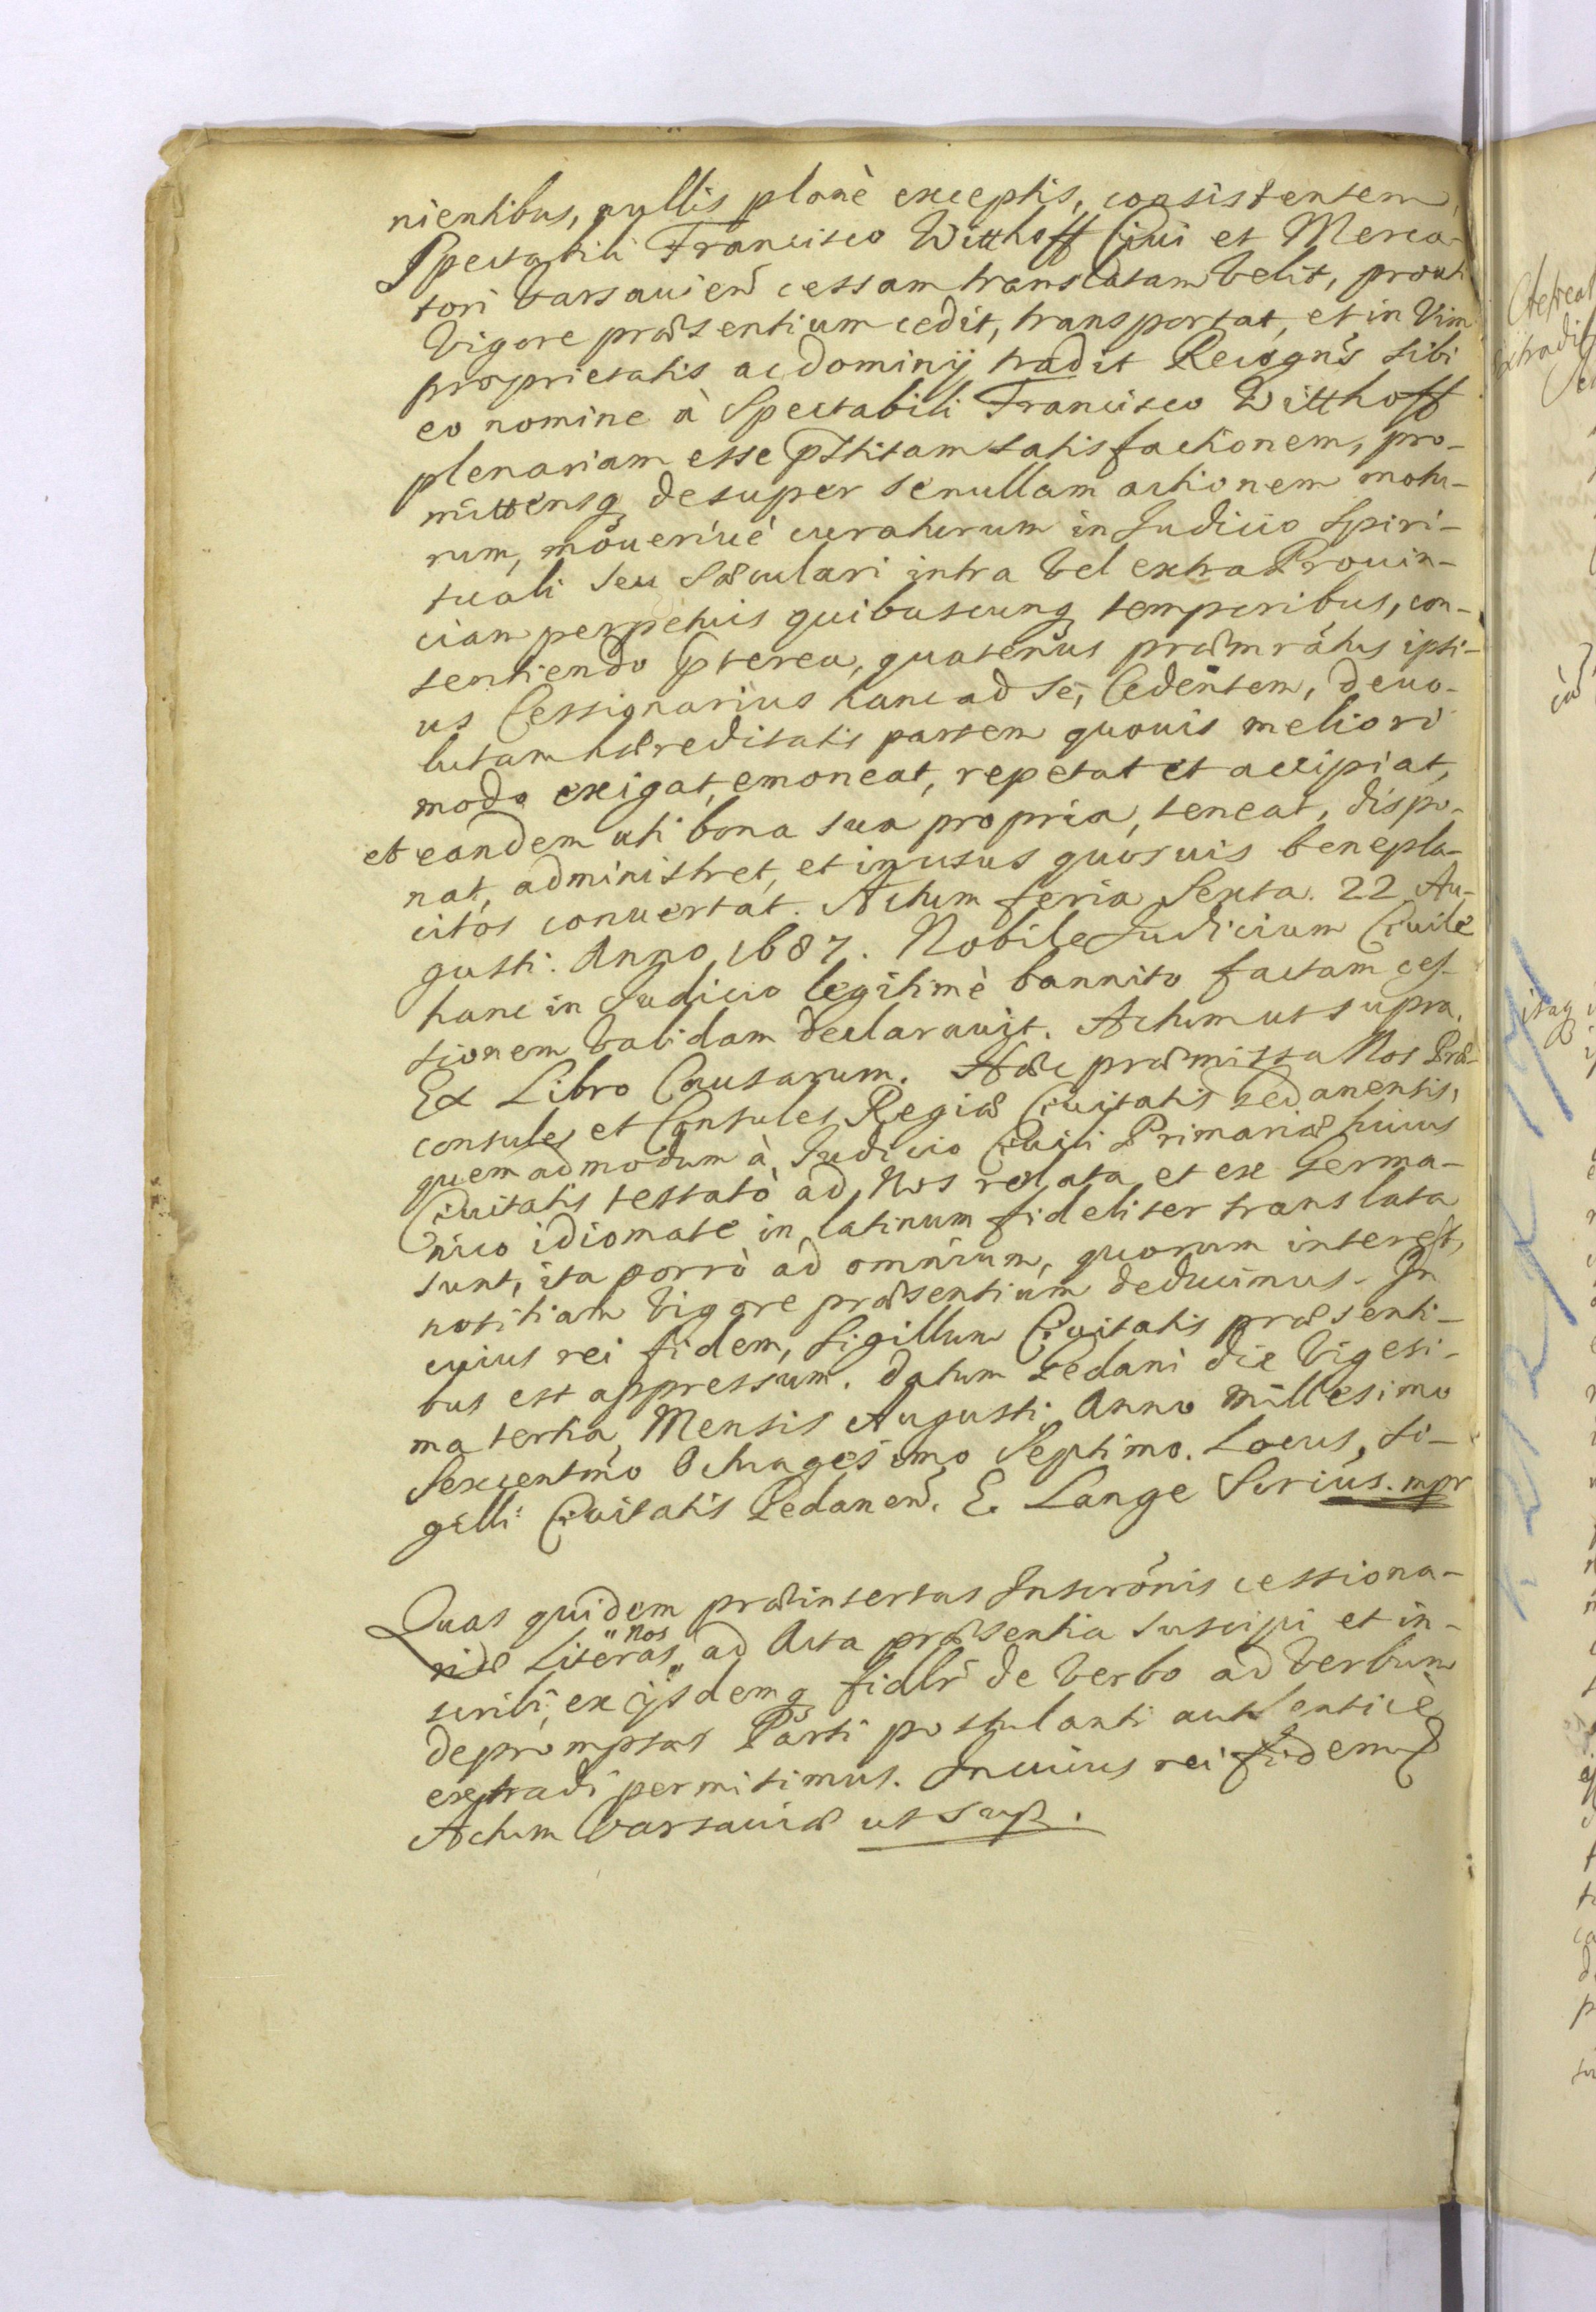 nientibus, nullis planè exceptis, consistentem,
Spectabili Francisco Witthoff Ciui et Merca-
tori Varsauien̄ cessam translatam velit, prout
vigore præsentium cedit, transportat, et in vim
proprietatis ac dominij tradit Recogn̄s sibi
eo nomine à Spectabili Francisco Witthoff
plenariam esse p̄stitam satisfactionem, pro-
mittensq desuper se nullam actionem motu-
rum, moueriuè curaturum in Judicio Spiri-
tuali seu Sæculari intra vel extra Prouin-
ciam perpetuis quibuscunq temporibus, con-
sentiendo p̄terea, quatenus præmrātus ipsi-
us Cessionarius hanc ad se, Cedentem, deuo-
lutam hæreditatis partem quouis meliori
modo exigat, emoneat, repetat et accipiat,
et eandem uti bona sua propria, teneat, dispo-
nat, administret, et in usus quosuis benepla-
citos conuertat. Actum feria Sexta. 22 Au-
gusti. Anno 1687. Nobile Judicium Ciuile
hanc in Judicio legitimè bannito factam ces-
sionem validam declarauit. Actum ut supra.
Ex Libro Causarum. Hæc præmissa Nos Præ-
consules et Consules Regiæ Ciuitatis Gedanensis,
quemadmodum à Judicio Ciuili Primariæ huius
Ciuitatis testatò ad Nos relata et ex Germa-
nico idiomate in latinum fideliter translata
sunt, ita porrò ad omnium, quorum interest,
notitiam vigore præsentium deducimus. In
cuius rei fidem, Sigillum Ciuitatis præsenti-
bus est appressum. Datum Gedani die Vigesi-
ma tertia, Mensis Augusti, Anno Millesimo
Sexcentmo Octuagesimo Septimo. Locus, Si-
gilli Ciuitatis Gedanen̄. E. Lange Scrius. mpr
Quas quidem præinsertas Inscrōnis cessiona-
riæ Literas "nos" ad Acta præsentia suscipi et in-
scribi, ex ijsdemq fidlr̄ de verbo ad verbum
depromptas Parti postulanti authenticè
extradi permisimus. In cuius rei fidem
Actum Varsauiæ ut sup.